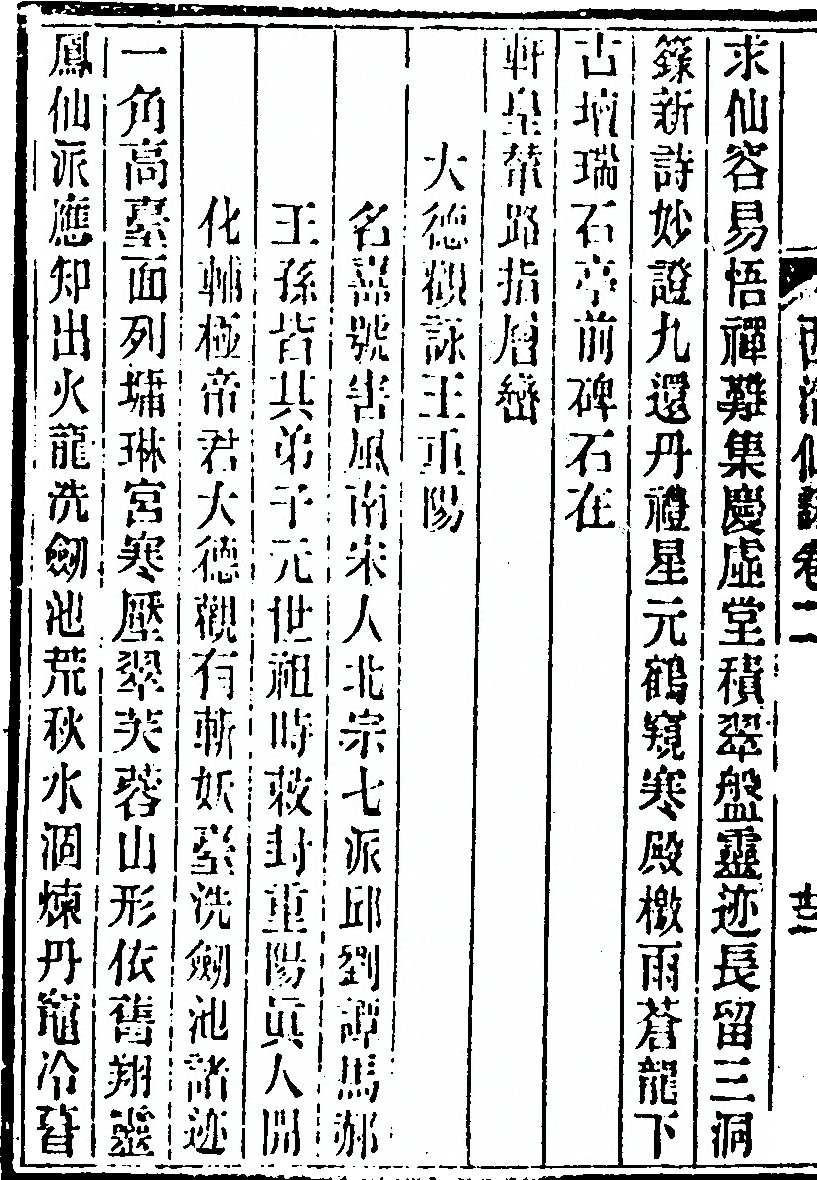 西湖仙詠卷二
廿二
求仙容易悟禪難集慶虛堂積翠盤靈迹長留三洞
籙新詩妙證九還丹禮星元鶴窺寒殿檄雨蒼龍下
古壇瑞石亭前碑石在
軒皇輦路指層巒
大德觀詠王重陽
名嚞號害風南宋人北宗七派邱劉譚馬郝
王孫皆其弟子元世祖時敕封重陽眞人開
化輔極帝君大德觀有斬妖臺洗劒池諸迹
一角高臺面列墉琳宮寒壓翠芙蓉山形依舊翔靈
鳳仙派應知出火龍洗劒池荒秋水涸煉丹竈冷